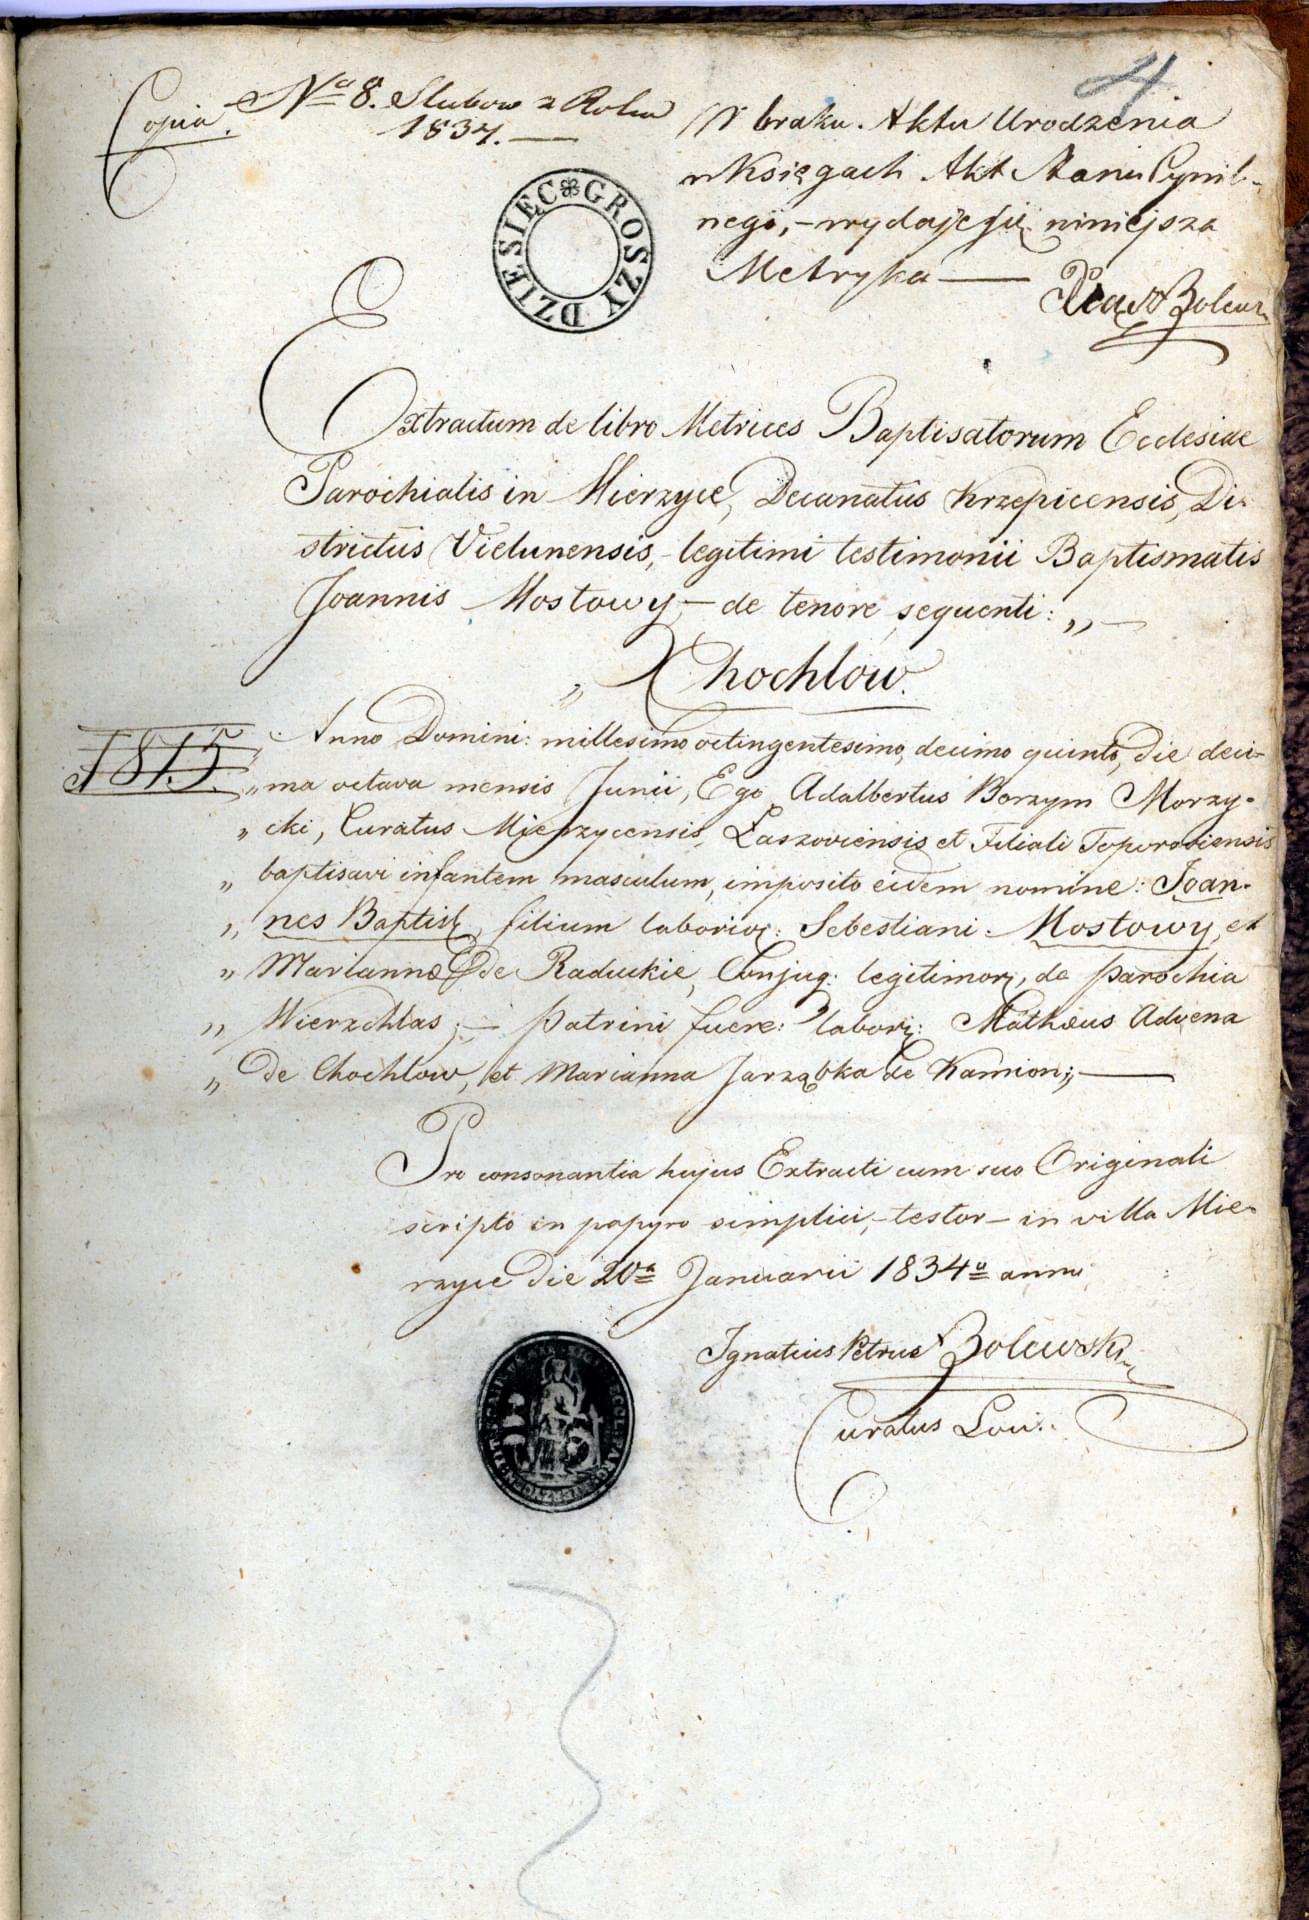 4
Copia.
No 8. Slubow z Roku
1834.—
W braku Aktu Urodzenia
w Księgach Akt Stanu Cywil-
nego, – wydaje się niniejsza
Metryka —
DZIESIĘC GROSZY
Extractum de libro Metrices Baptisatorum Ecclesiae
Parochialis in Mierzyce, Decanatus Krzepicensis, Di-
strictus Vielunensis, – legitimi testimonii Baptismatis
Joannis Mostowy, – de tenore sequenti: „ —
„ Chochlow.
1815.
„ Anno Domini: millesimo octingentesimo, decimo quinto, die deci-
„ ma octava mensis Junii, Ego Adalbertus Borzym Morzy-
„ cki, Curatus Mierzycensis, Łaszoviensis et Filiali Toporoviensis
„ baptisavi infantem masculum, imposito eidem nomine: Joan-
„ nes Baptist, filium laborios: Sebestiani Mostowy, et
„ Mariannæ de Raduckie, Conjug: legitimor, de parochia
„ Wierzchlas; – Patrini fuere: labor: Mathæus Advena
„ de Chochłow, et Marianna Jarząbka de Kamion; „ —
Pro consonantia hujus Extracti cum suo Originali
scripto in papyro simplici, – testor – in villa Mie-
rzyce die 20a Januarii 1834o anno
Ignatius Petrus Zolewski
Curatus Loci.